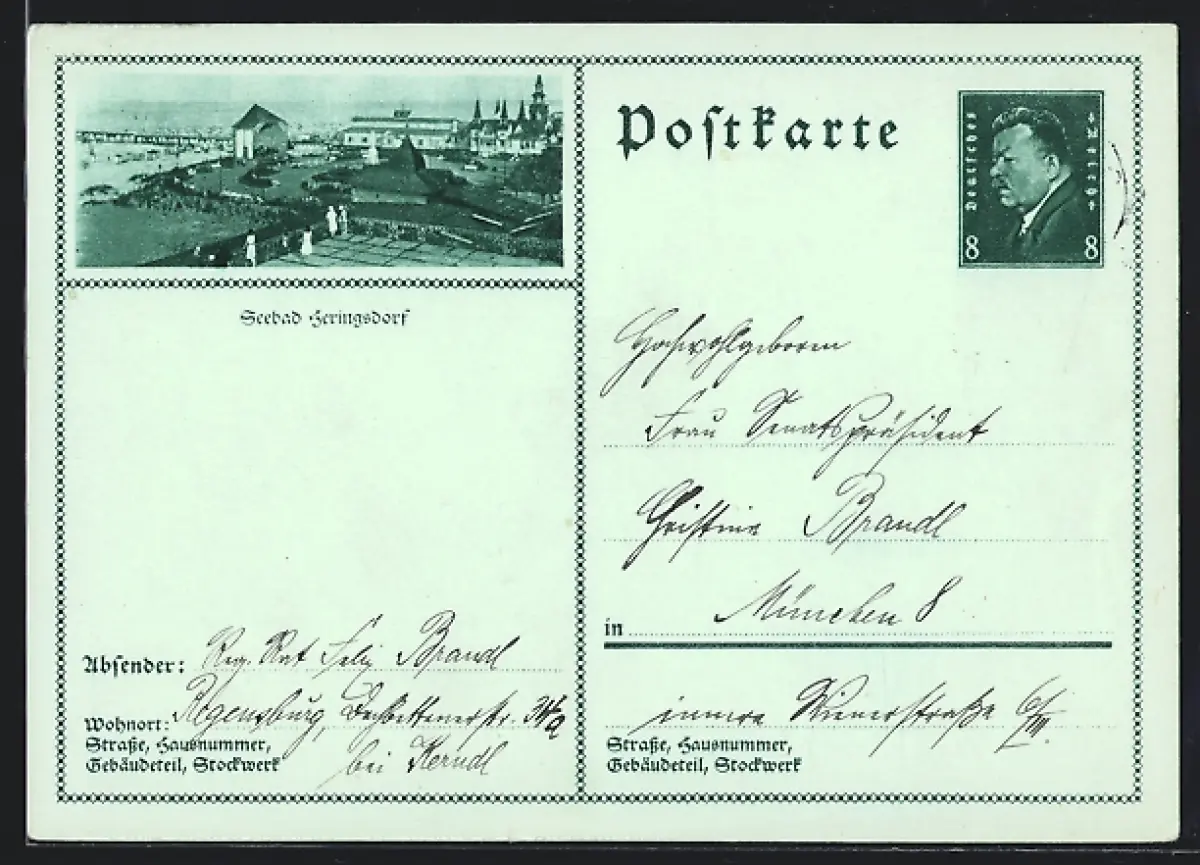 Seebad Heringsdorf
Absender: Reg. Rat Felix Brandl
Wohnort: Regensburg, Dechbettenerstr. 34/a
Straße, Hausnummer,
Gebäudeteil, Stockwerk
bei Kerndl
Postkarte
Deutsches Reich
8 8
Hochwohlgeboren
Frau Senatspräsident
Christine Brandl
in München 8
innere Wienerstraße 6/III.
Straße, Hausnummer,
Gebäudeteil, Stockwerk